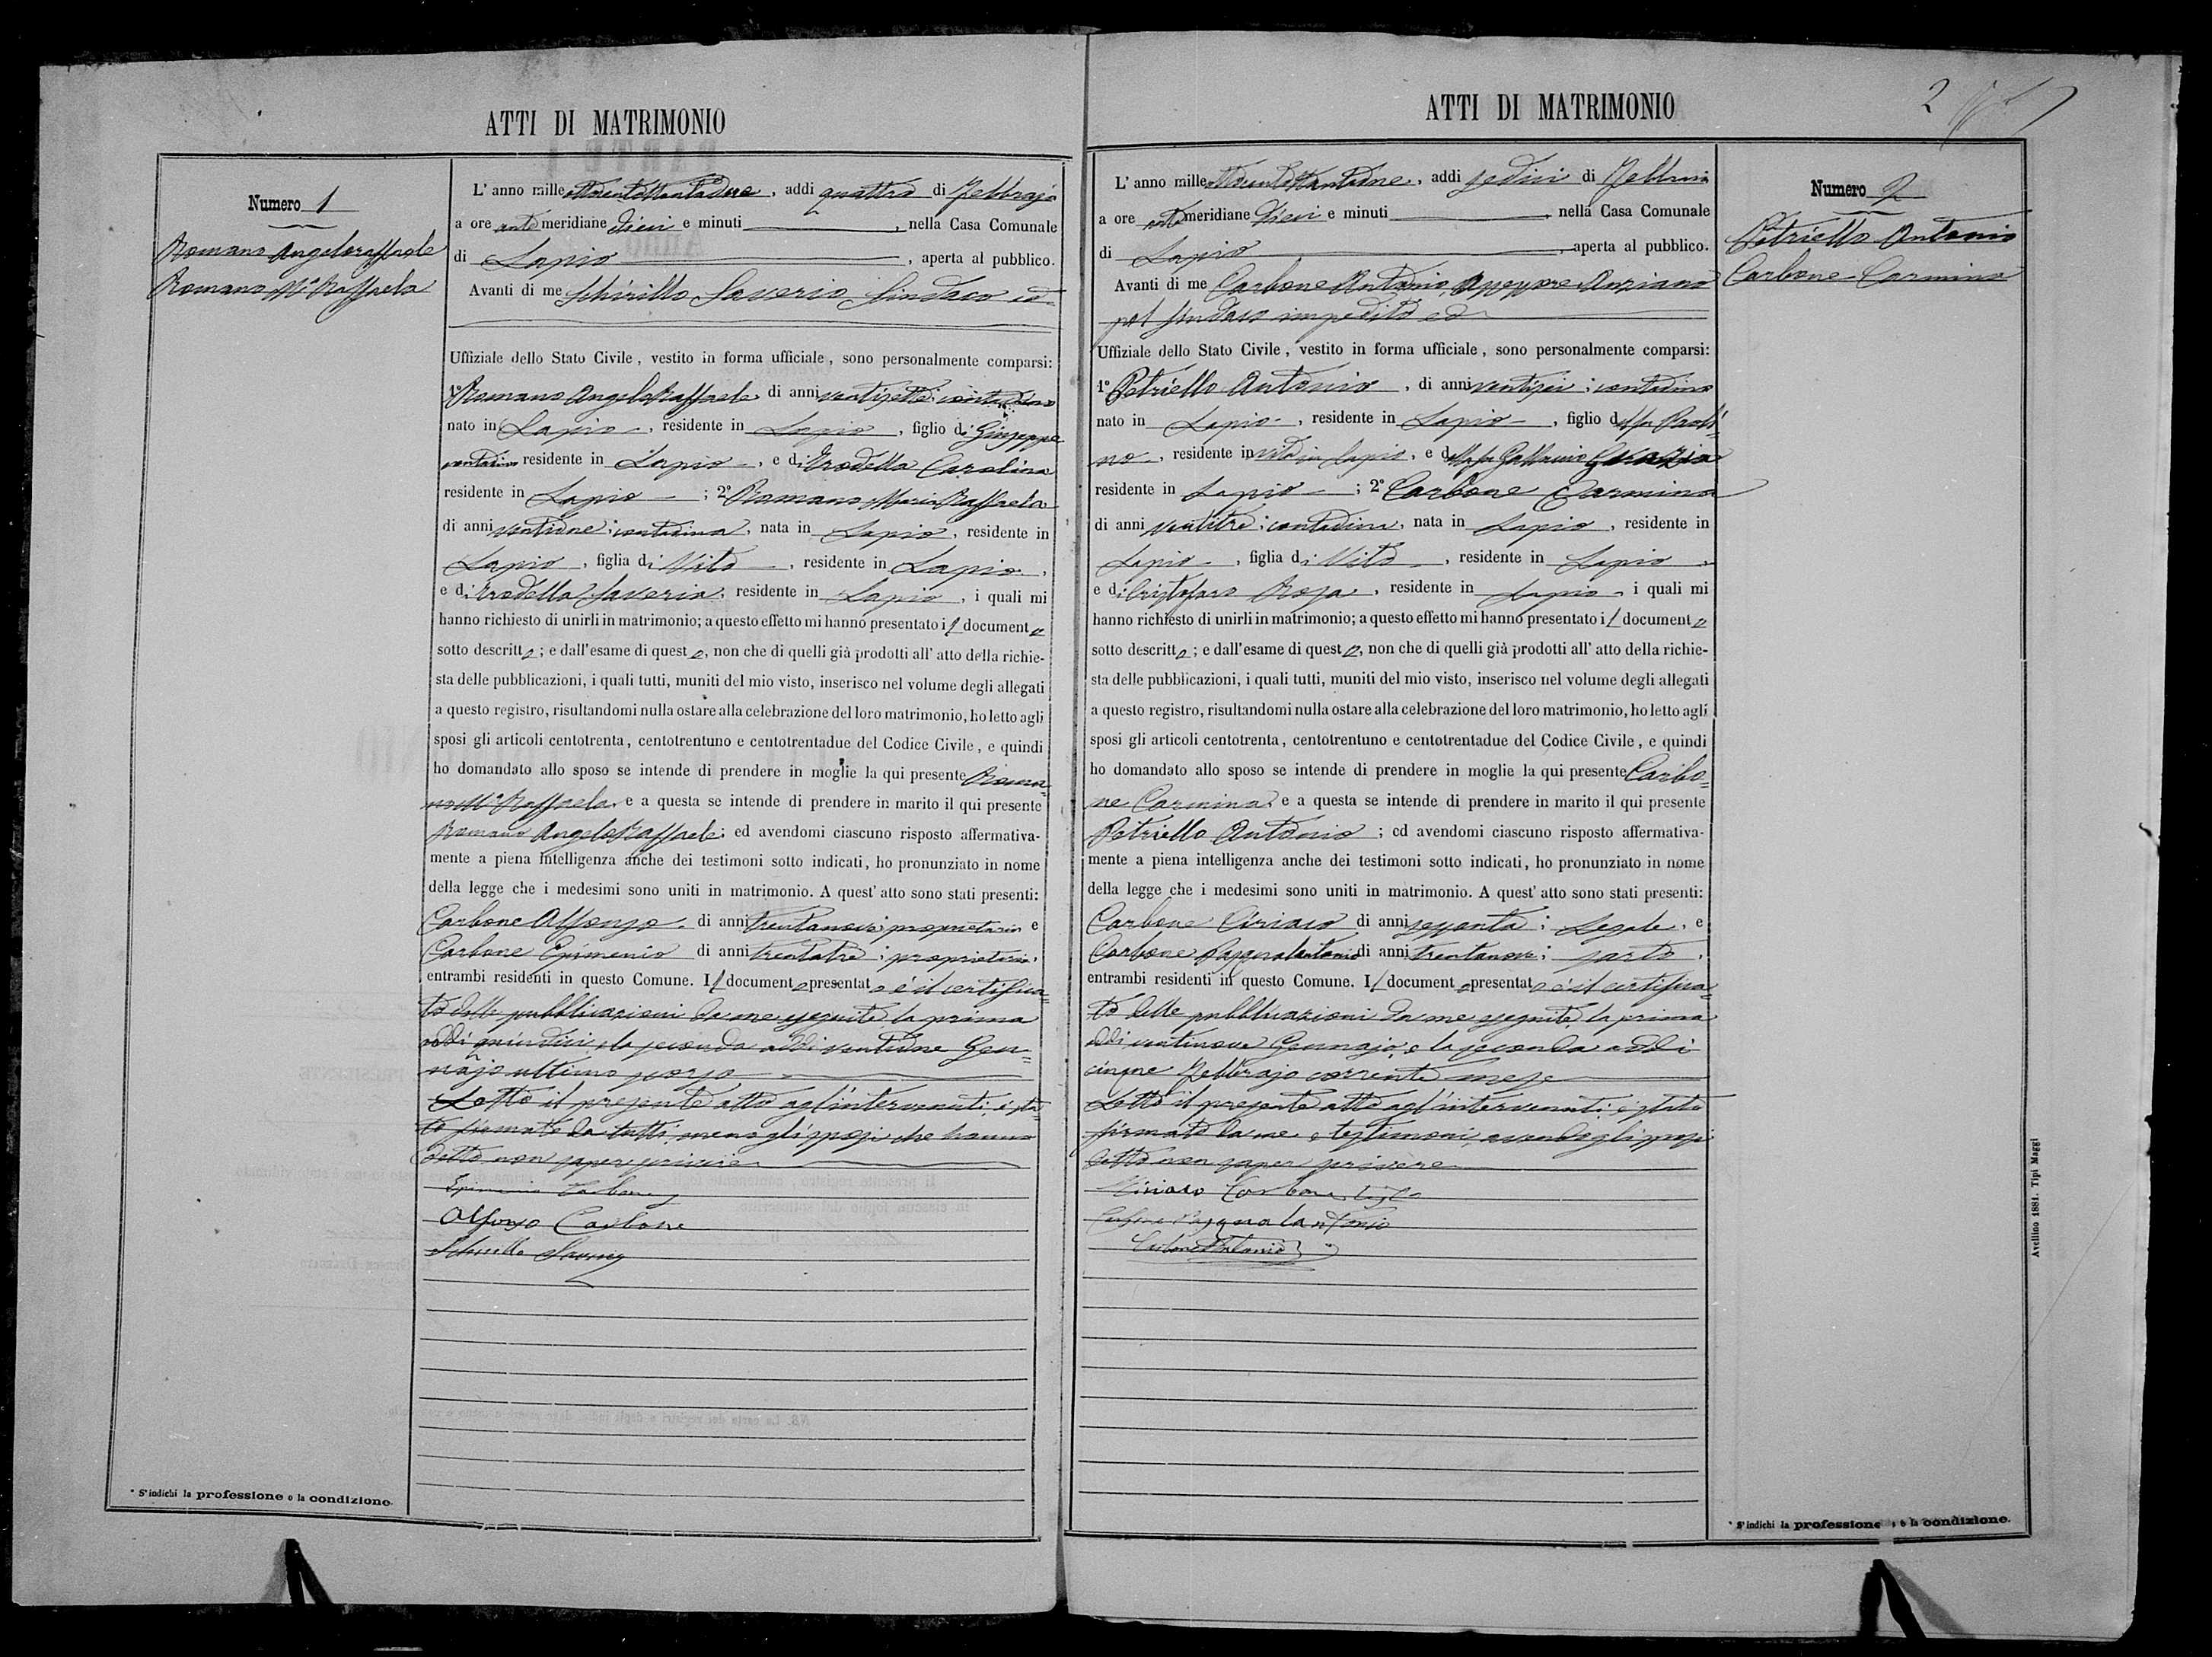 ATTI DI MATRIMONIO
Numero 1
Romano Angeloraffaele
Romano Mª Raffaela
L'anno mille ottocentottantadue, addì quattro di Febbrajo
a ore ante meridiane dieci e minuti , nella Casa Comunale
di Lapio , aperta al pubblico.
Avanti di me Schirillo Saverio Sindaco ed
Uffiziale dello Stato Civile, vestito in forma ufficiale, sono personalmente comparsi:
1º Romano AngeloRaffaele di anni ventisette; contadino
nato in Lapio, residente in Lapio, figlio di Giuseppe
contadino residente in Lapio, e di Trodella Carolina
residente in Lapio; 2º Romano Maria Raffaela
di anni ventidue; contadina, nata in Lapio, residente in
Lapio, figlia di Vito, residente in Lapio,
e di Trodella Saveria, residente in Lapio, i quali mi
hanno richiesto di unirli in matrimonio; a questo effetto mi hanno presentato il documento
sotto descritto; e dall'esame di questo, non che di quelli già prodotti all'atto della richie-
sta delle pubblicazioni, i quali tutti, muniti del mio visto, inserisco nel volume degli allegati
a questo registro, risultandomi nulla ostare alla celebrazione del loro matrimonio, ho letto agli
sposi gli articoli centotrenta, centotrentuno e centotrentadue del Codice Civile, e quindi
ho domandato allo sposo se intende di prendere in moglie la qui presente Roma=
no Mª Raffaela e a questa se intende di prendere in marito il qui presente
Romano AngeloRaffaele; ed avendomi ciascuno risposto affermativa-
mente a piena intelligenza anche dei testimoni sotto indicati, ho pronunziato in nome
della legge che i medesimi sono uniti in matrimonio. A quest'atto sono stati presenti:
Carbone Alfonso di anni trentanove; proprietario e
Carbone Epimenio di anni trentatre; proprietario,
entrambi residenti in questo Comune. Il documento presentato è il certifica=
to delle pubblicazioni da me eseguite la prima
addì quindici, e la seconda addì ventidue Gen=
najo ultimo scorso
Letto il presente atto agl'intervenuti, è sta=
to firmato da tutti, meno gli sposi che hanno
detto non saper scrivere
Epimenio Carbone
Alfonso Carbone
Schirillo Saverio
* S'indichi la professione o la condizione.
ATTI DI MATRIMONIO
2
L'anno mille ottocentottantadue, addì sedici di Febbraio
a ore ante meridiane dieci e minuti , nella Casa Comunale
di Lapio , aperta al pubblico.
Avanti di me Carbone Antonio, Assessore Anziano
pel Sindaco impedito ed
Uffiziale dello Stato Civile, vestito in forma ufficiale, sono personalmente comparsi:
1º Petriello Antonio, di anni ventisei; contadino
nato in Lapio, residente in Lapio, figlio del fu Paoli=
no, residente in vita in Lapio, e della fu
residente in Lapio; 2º Carbone Carmina
di anni ventitre; contadina, nata in Lapio, residente in
Lapio, figlia di Vito, residente in Lapio,
e di Cristofaro Rosa, residente in Lapio, i quali mi
hanno richiesto di unirli in matrimonio; a questo effetto mi hanno presentato il documento
sotto descritto; e dall'esame di questo, non che di quelli già prodotti all'atto della richie-
sta delle pubblicazioni, i quali tutti, muniti del mio visto, inserisco nel volume degli allegati
a questo registro, risultandomi nulla ostare alla celebrazione del loro matrimonio, ho letto agli
sposi gli articoli centotrenta, centotrentuno e centotrentadue del Codice Civile, e quindi
ho domandato allo sposo se intende di prendere in moglie la qui presente Carbo=
ne Carmina e a questa se intende di prendere in marito il qui presente
Petriello Antonio; ed avendomi ciascuno risposto affermativa-
mente a piena intelligenza anche dei testimoni sotto indicati, ho pronunziato in nome
della legge che i medesimi sono uniti in matrimonio. A quest'atto sono stati presenti:
Carbone Ciriaco di anni sessanta; Legale, e
Carbone Pasqualantonio di anni trentanove; sarto,
entrambi residenti in questo Comune. Il documento presentato è il certifica=
to delle pubblicazioni da me eseguite, la prima
addì ventinove Gennajo, e la seconda addì
cinque Febbrajo corrente mese
Letto il presente atto agl'intervenuti, è stato
firmato da me e testimoni, avendo gli sposi
detto non saper scrivere
Ciriaco Carbone
Carbone Pasqualantonio
Carbone Antonio
Numero 2
Petriello Antonio
Carbone Carmina
Avellino 1881. Tipi Maggi
* S'indichi la professione o la condizione.